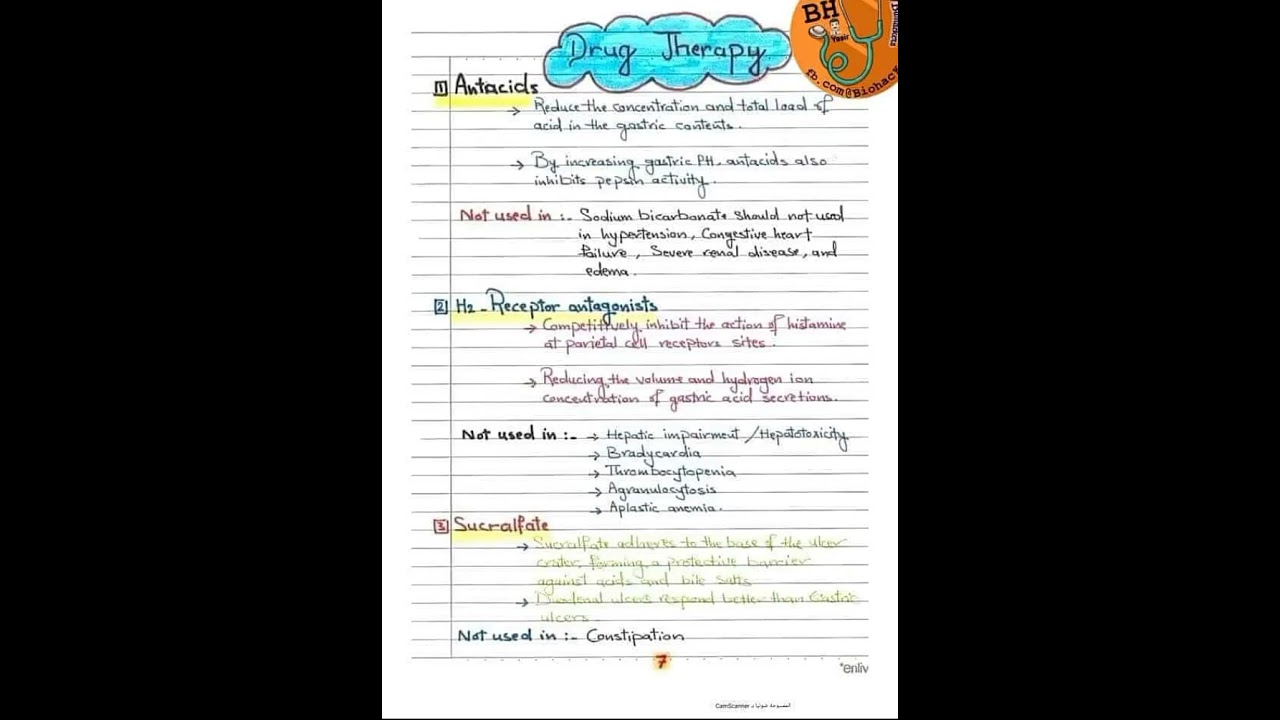 BH
Yasir
fb.com@Biohack
Drug Therapy
1 Antacids
→ Reduce the concentration and total load of
acid in the gastric contents.
→ By increasing gastric PH, antacids also
inhibits pepsin activity.
Not used in :- Sodium bicarbonate should not used
in hypertension, Congestive heart
failure, Severe renal disease, and
edema.
2 H2-Receptor antagonists
→ Competitively inhibit the action of histamine
at parietal cell receptors sites.
→ Reducing the volume and hydrogen ion
concentration of gastric acid secretions.
Not used in :- → Hepatic impairment / Hepatotoxicity
→ Bradycardia
→ Thrombocytopenia
→ Agranulocytosis
→ Aplastic anemia.
3 Sucralfate
→ Sucralfate adheres to the base of the ulcer
crater, forming a protective barrier
against acids and bile salts
→ Duodenal ulcers respond better than Gastric
ulcers.
Not used in :- Constipation
7
*enliv
الممسوحة ضوئيا بـ CamScanner